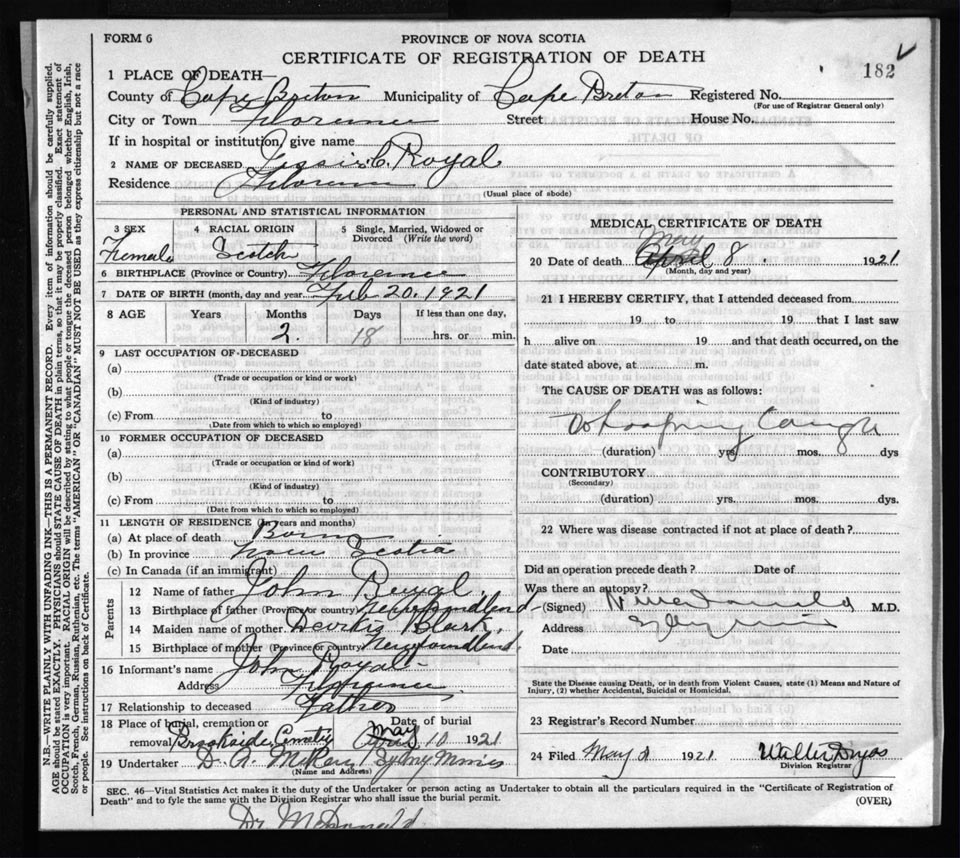 FORM 6
PROVINCE OF NOVA SCOTIA
CERTIFICATE OF REGISTRATION OF DEATH
182
1 PLACE OF DEATH—
County of Cape Breton Municipality of Cape Breton Registered No.
(For use of Registrar General only)
City or Town Florence Street House No.
If in hospital or institution, give name
2 NAME OF DECEASED Jessie C. Royal
Residence Florence
(Usual place of abode)
PERSONAL AND STATISTICAL INFORMATION
3 SEX 4 RACIAL ORIGIN 5 Single, Married, Widowed or Divorced (Write the word)
Female Scotch
6 BIRTHPLACE (Province or Country) Florence
7 DATE OF BIRTH (month, day and year) Feb 20. 1921
8 AGE Years Months Days If less than one day,
2. 18 hrs. or min.
9 LAST OCCUPATION OF DECEASED
(a)
(Trade or occupation or kind or work)
(b)
(Kind of industry)
(c) From to
(Date from which to which so employed)
10 FORMER OCCUPATION OF DECEASED
(a)
(Trade or occupation or kind of work)
(b)
(Kind of industry)
(c) From to
(Date from which to which so employed)
11 LENGTH OF RESIDENCE (In years and months)
(a) At place of death Born
(b) In province Nova Scotia
(c) In Canada (if an immigrant)
Parents
12 Name of father John Royal
13 Birthplace of father (Province or country) Newfoundland
14 Maiden name of mother
15 Birthplace of mother (Province or country) Newfoundland
16 Informant's name John Royal
Address Florence
17 Relationship to deceased Father
18 Place of burial, cremation or removal Brookside Cemetery
Date of burial May April 10 1921
19 Undertaker Sydney Mines
(Name and Address)
MEDICAL CERTIFICATE OF DEATH
May
20 Date of death April 8 1921
(Month, day and year)
21 I HEREBY CERTIFY, that I attended deceased from
19 to 19 that I last saw
h alive on 19 and that death occurred, on the
date stated above, at m.
The CAUSE OF DEATH was as follows:
Whooping Cough
(duration) yrs. mos. dys
CONTRIBUTORY
(Secondary)
(duration) yrs. mos. dys.
22 Where was disease contracted if not at place of death?
Did an operation precede death? Date of
Was there an autopsy?
(Signed) M.D.
Address
Date
State the Disease causing Death, or in death from Violent Causes, state (1) Means and Nature of
Injury, (2) whether Accidental, Suicidal or Homicidal.
23 Registrar's Record Number
24 Filed May 1921 Walter
Division Registrar
SEC. 46—Vital Statistics Act makes it the duty of the Undertaker or person acting as Undertaker to obtain all the particulars required in the "Certificate of Registration of
Death" and to fyle the same with the Division Registrar who shall issue the burial permit.
(OVER)
Dr. McDonald
N.B.—WRITE PLAINLY WITH UNFADING INK—THIS IS A PERMANENT RECORD. Every item of information should be carefully supplied.
AGE should be stated EXACTLY. PHYSICIANS should STATE CAUSE OF DEATH in plain terms, so that it may be properly classified. Exact statement of
OCCUPATION is very important. RACIAL ORIGIN will be described by stating to what people or tongue the deceased person belonged whether English, Irish,
Scotch, French, German, Russian, Ruthenian, etc. The terms "AMERICAN" OR "CANADIAN" MUST NOT BE USED as they express citizenship but not a race
or people. See instructions on back of Certificate.